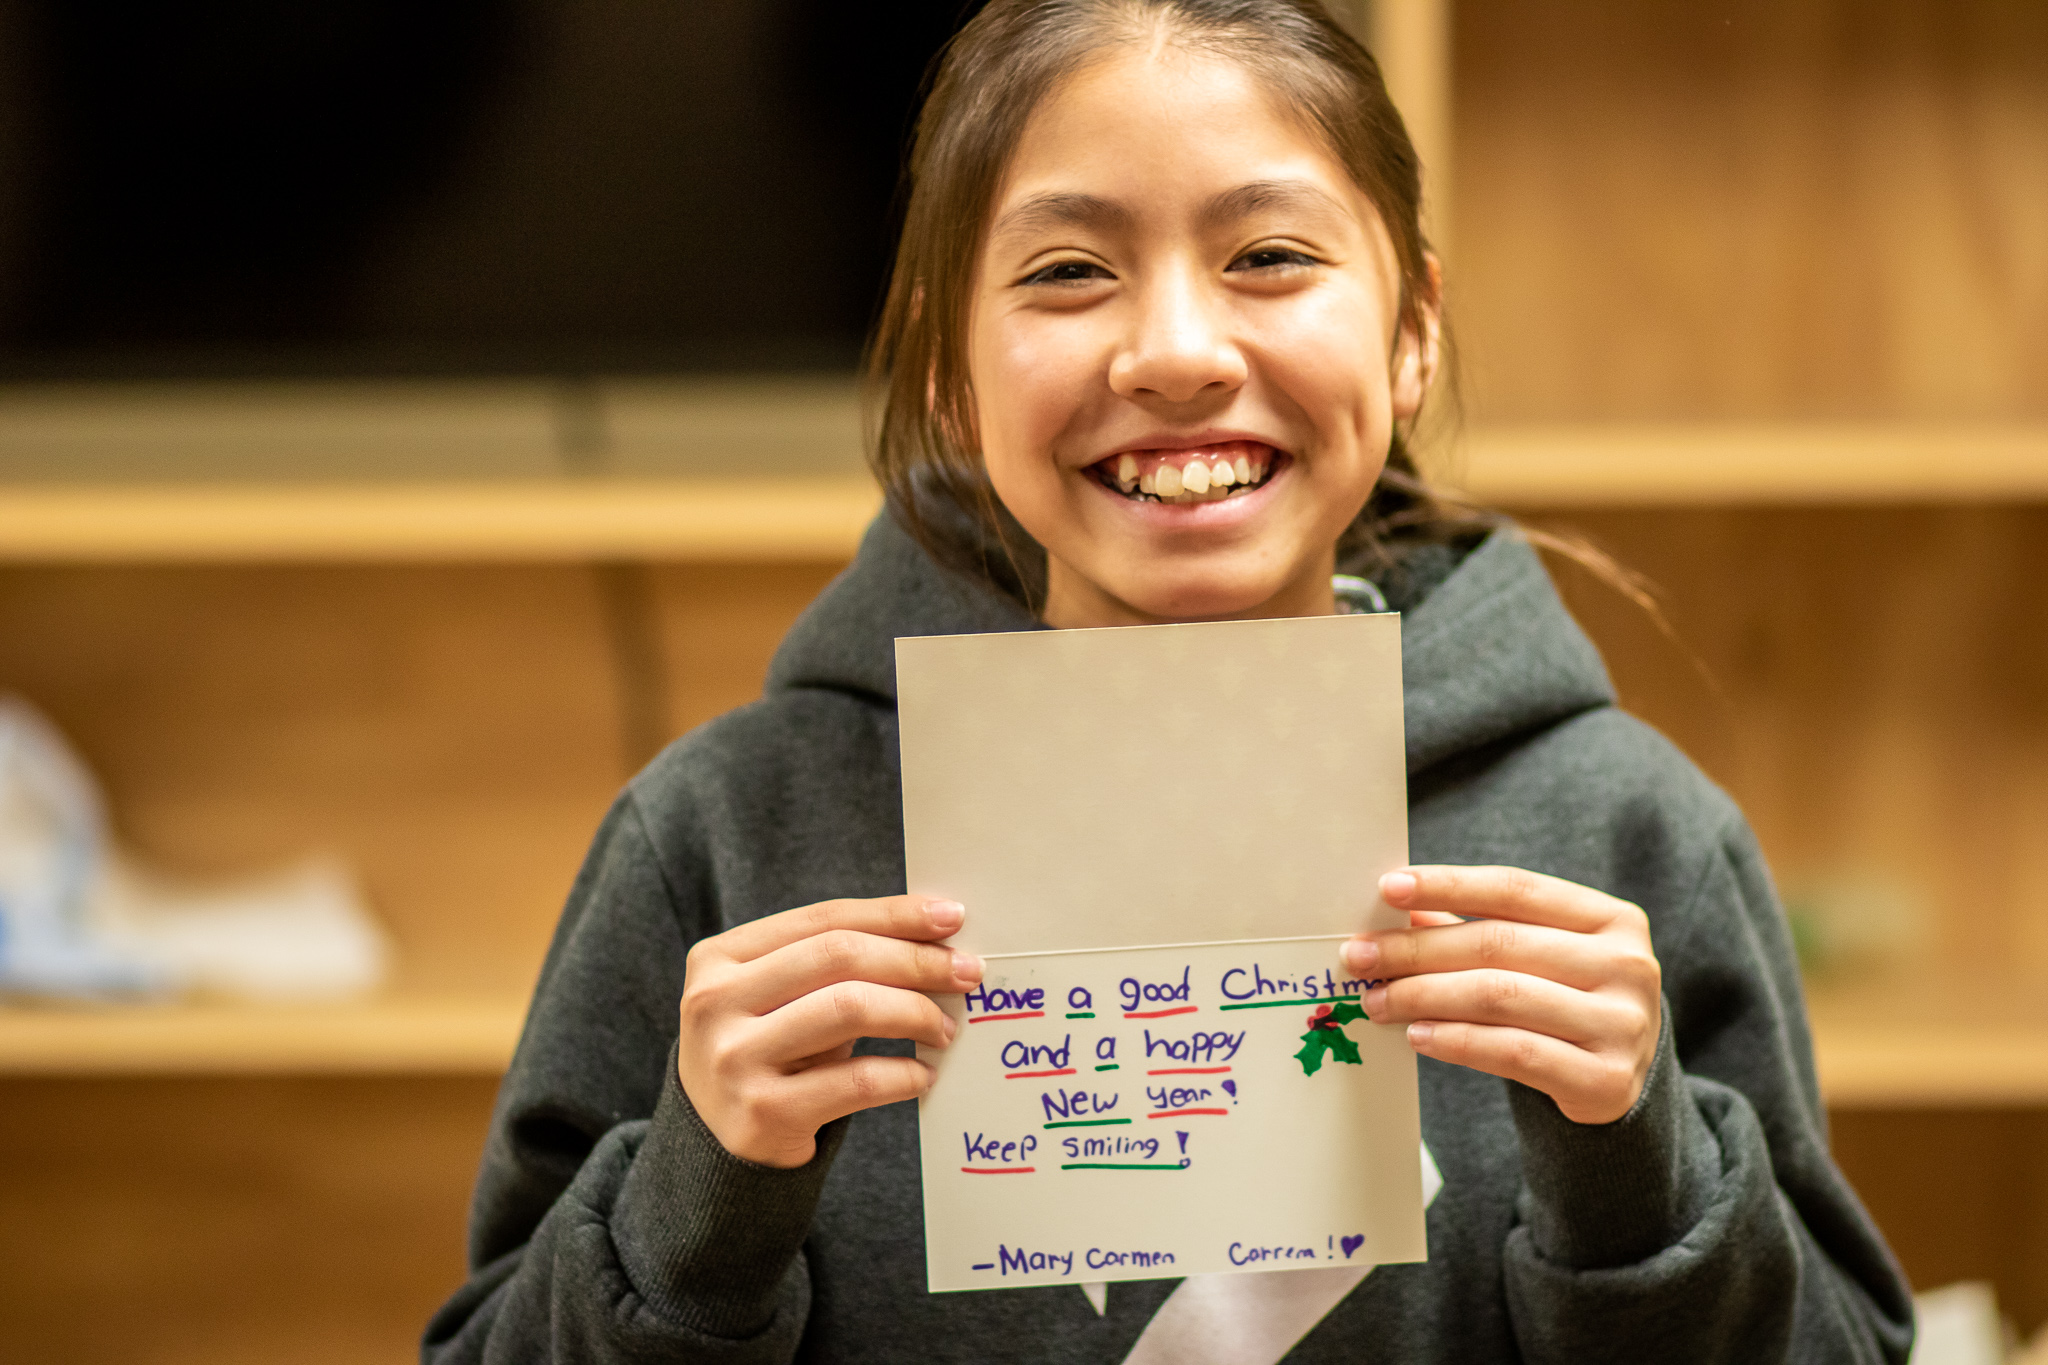 Have a good Christm
and a happy
New year!
Keep smiling!
-Mary Carmen Carrera!